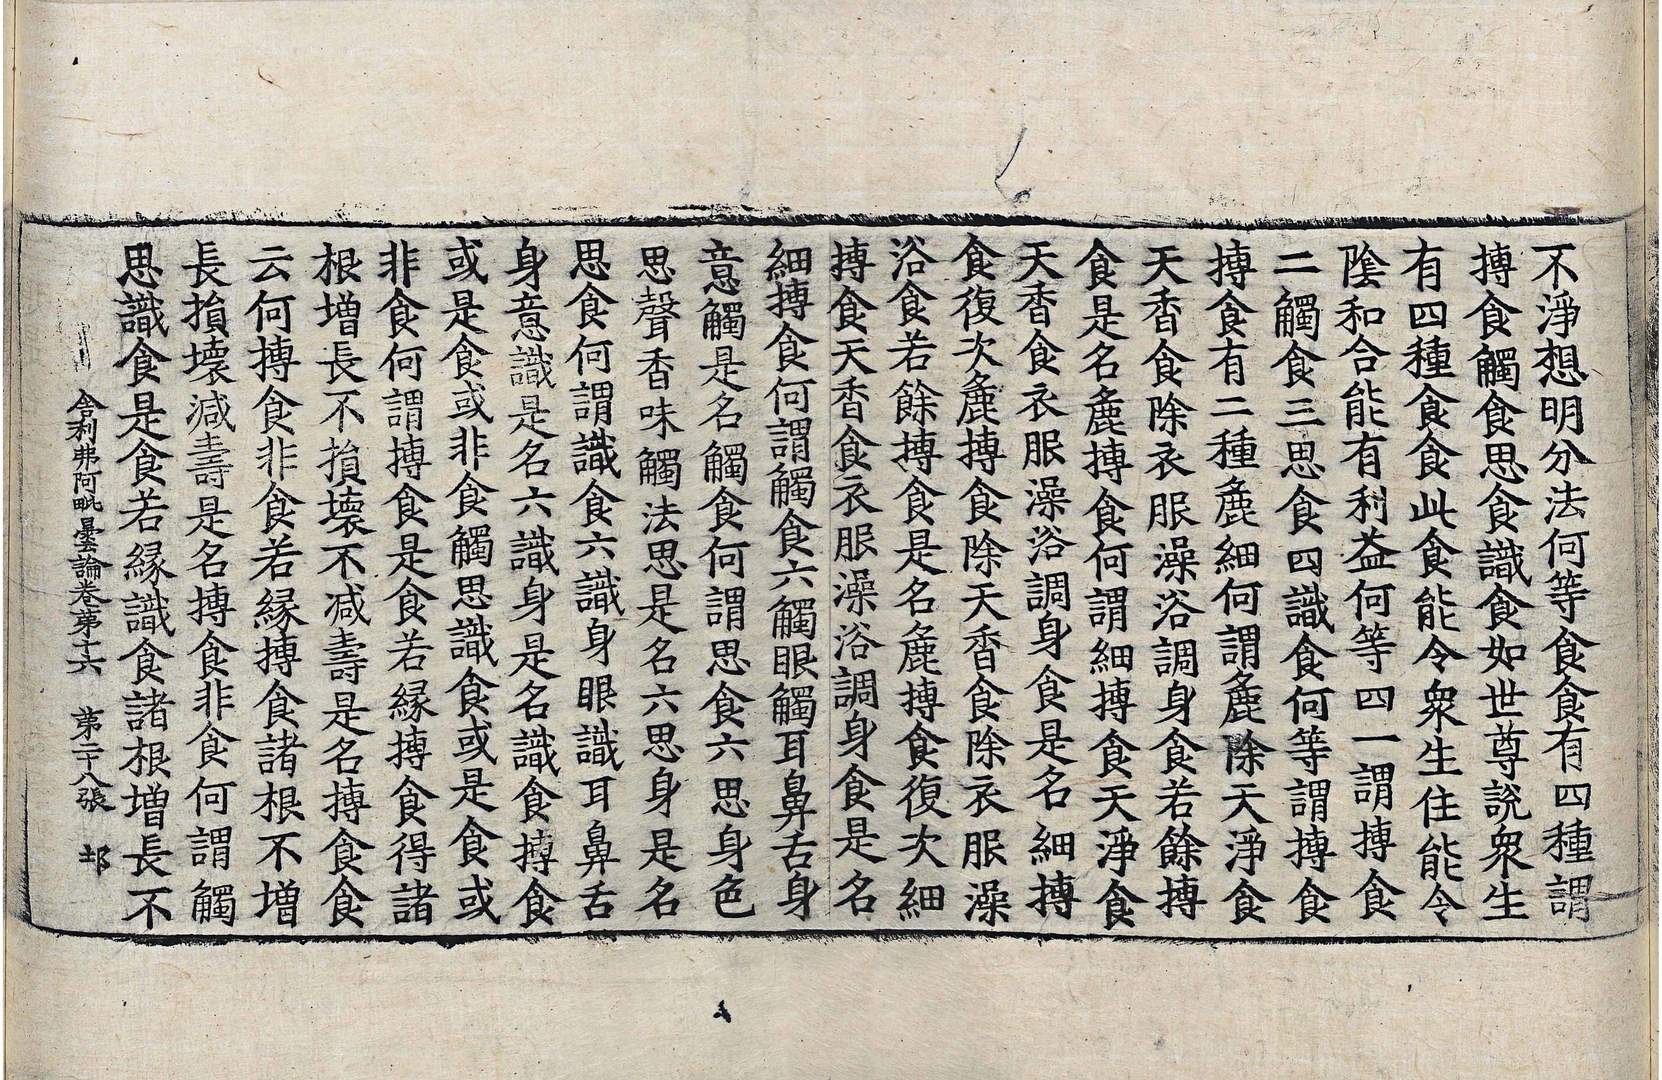 不淨想明分法何等食食有四種謂
搏食觸食思食識食如世尊說衆生
有四種食食此食能令衆生住能令
陰和合能有利益何等四一謂搏食
二觸食三思食四識食何等謂搏食
搏食有二種麁細何謂麁除天淨食
天香食除衣服澡浴調身食若餘搏
食是名麁搏食何謂細搏食天淨食
天香食衣服澡浴調身食是名細搏
食復次麁搏食除天香食除衣服澡
浴食若餘搏食是名麁搏食復次細
搏食天香食衣服澡浴調身食是名
細搏食何謂觸食六觸眼觸耳鼻舌身
意觸是名觸食何謂思食六思身色
思聲香味觸法思是名六思身是名
思食何謂識食六識身眼識耳鼻舌
身意識是名六識身是名識食搏食
或是食或非食觸思識食或是食或
非食何謂搏食是食若緣搏食得諸
根增長不損壞不減壽是名搏食食
云何搏食非食若緣搏食諸根不增
長損壞減壽是名搏食非食何謂觸
思識食是食若緣識食諸根增長不
舍利弗阿毗曇論卷第十六 第二十八張